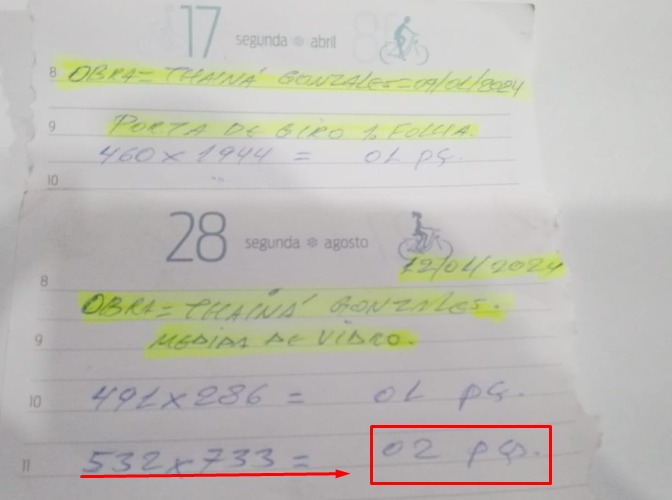 17 segunda abril
8 OBRA= THAINÁ GONZALES=09/01/2024
9 PORTA DE GIRO 1 FOLHA.
460 x 1944 = 01 pç.
10
28 segunda agosto
12/01/2024
8
OBRA= THAINÁ GONZALES.
9 MEDIDA DE VIDRO.
10 491 x 286 = 01 pç.
11 532 x 733 = 02 pç.